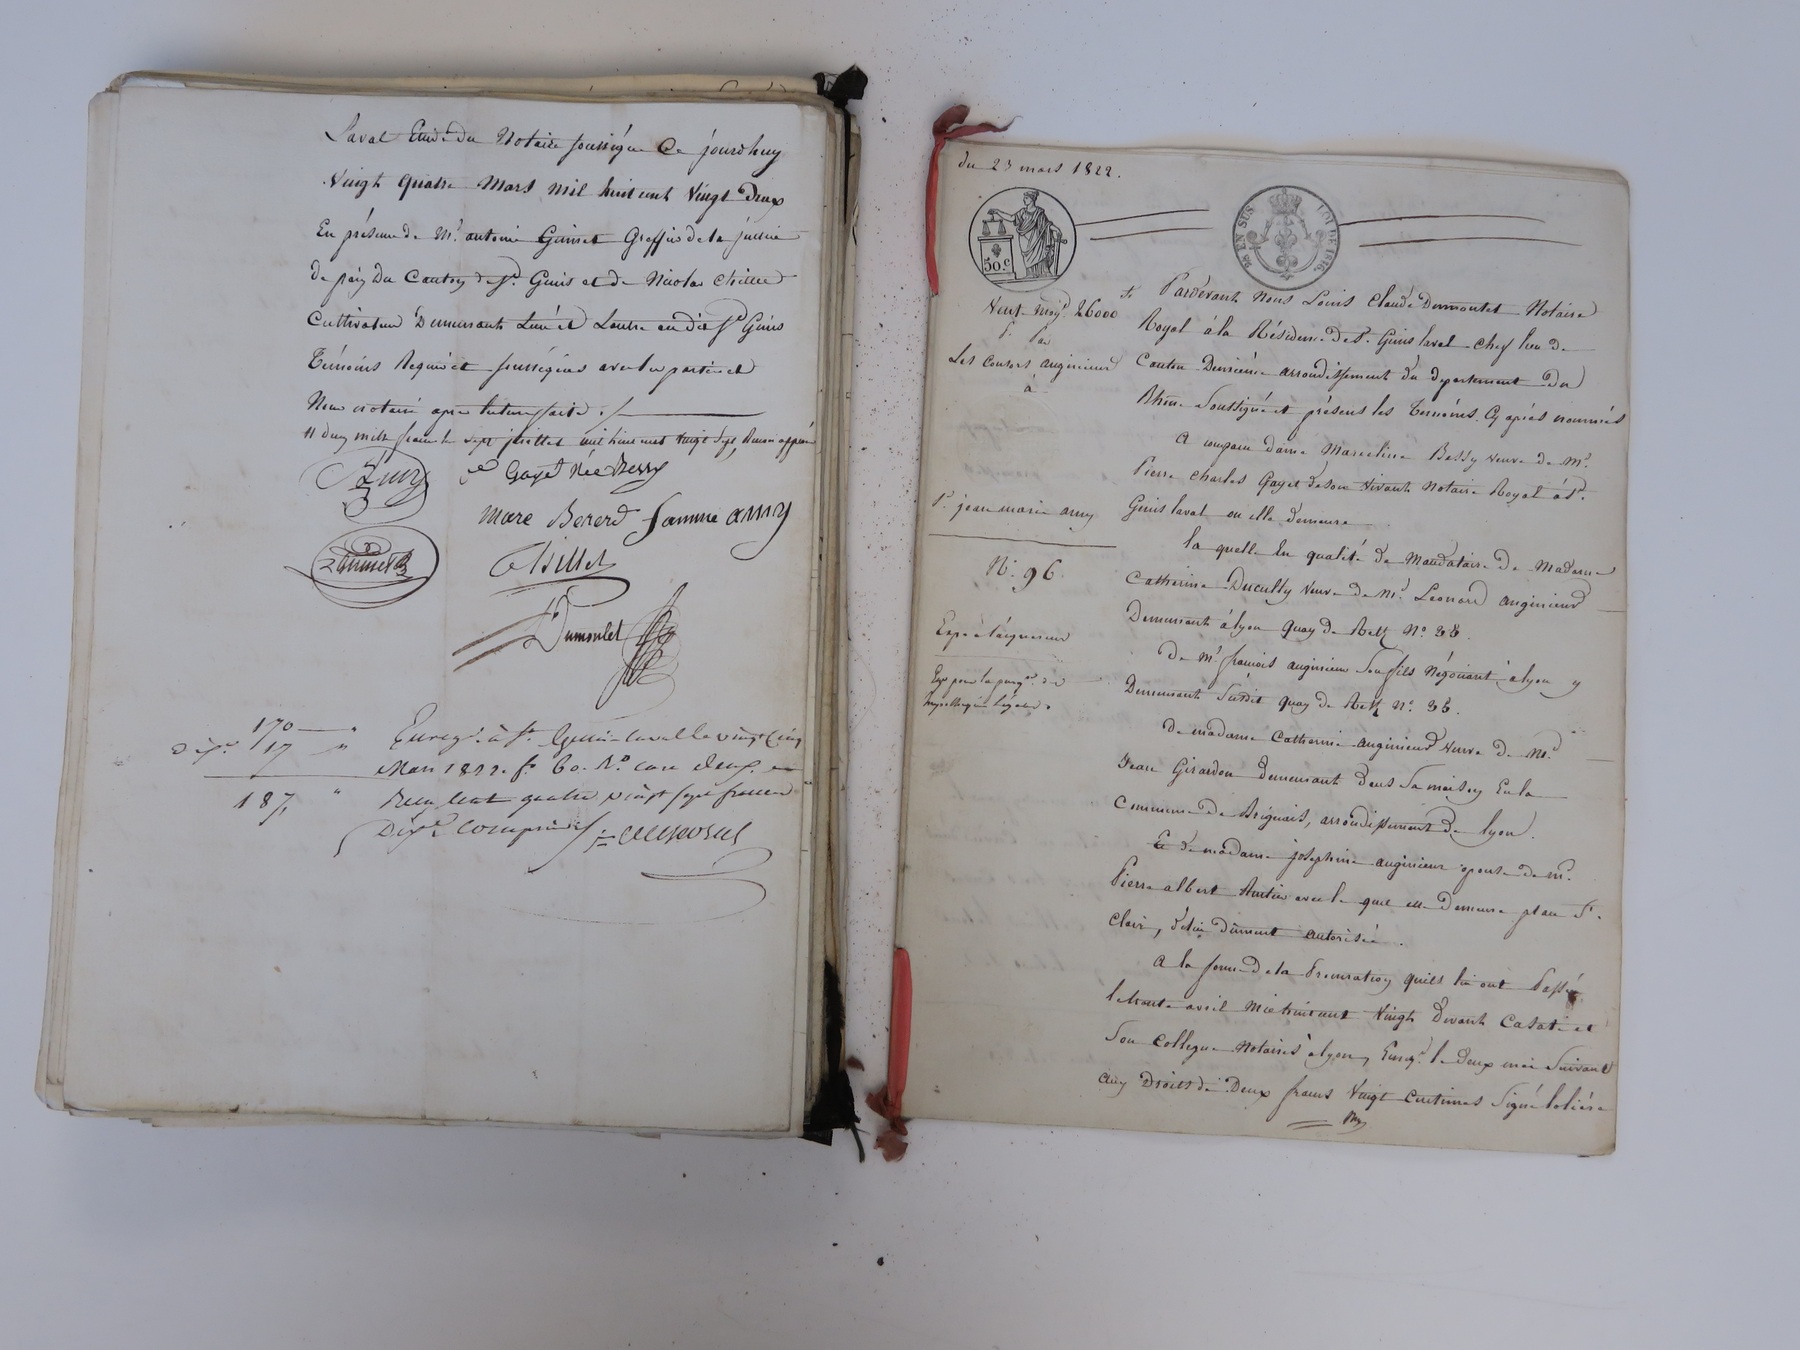 Laval Etude du Notaire soussigné Ce jourdhuy
Vingt quatre Mars mil huit cent Vingt Deux
En présence de Mr. antoine Guinet Greffier de la justice
de paix du Canton de St. Genis et de Nicolas
Cultivateur Demeurants Lun et Lautre audit St Genis
Témoins Requis et soussignés avec les parties et
Nous notaire apres lecture faite ./.
deux mille francs le sept juillet mil huit cent vingt sept, Renvoi approuvé
Gayet Née Bessy
mare Bererd famme amy
Dumoulet
170 "
Dixe. 17 "
187, "
Enregé. à St. Genis-laval le vingt cinq
Mars 1822. fo. 60. Ro. case deux, 
Reçu cent quatre vingt sept francs
Dixe. compris
du 23 mars 1822.
50 c
25 EN SUS
LOI DE 1816.
Vente moyt. 26000 f.
Par
Les Consorts anginieur
à
Sr. jean marie amy
No. 96
Expé a lacquereur
Pardevant Nous Louis Claude Dumoulet Notaire
Royal à la Résidence de St. Genis laval chef lieu de
Canton Deuxième arrondissement du département du
Rhône Soussigné et présens les Témoins Cy après nommés
A comparu dame Marceline Bessy veuve de Mr.
Pierre Charles Gayet de son vivant Notaire Royal à St.
Genis laval ou elle demeure
la quelle En qualité de Mandataire de Madame
Catherine Ducully veuve de Mr. Leonard anginieur
Demeurant à lyon Quay de Retz No. 36.
De Mr. francois anginieur Son fils Négociant à lyon y
Demeurant Susdit quay de Retz No. 36.
De madame Catherine anginieur veuve de Mr.
Jean Girardon demeurant dans Sa maison En la
Commune de Brignais, arrondissement de lyon.
Et de madame josephine anginieur epouse de Mr.
Pierre albert avec le quel elle demeure place St.
Clair, de lui dument autorisée.
A la forme de la Procuration quils lui ont Passée
le trente avril Mil huit cent Vingt Devant Casati et
Son Collegue Notaires à lyon, Enregé. le Deux mai Suivant
aux Droits de Deux francs Vingt Centimes Signé